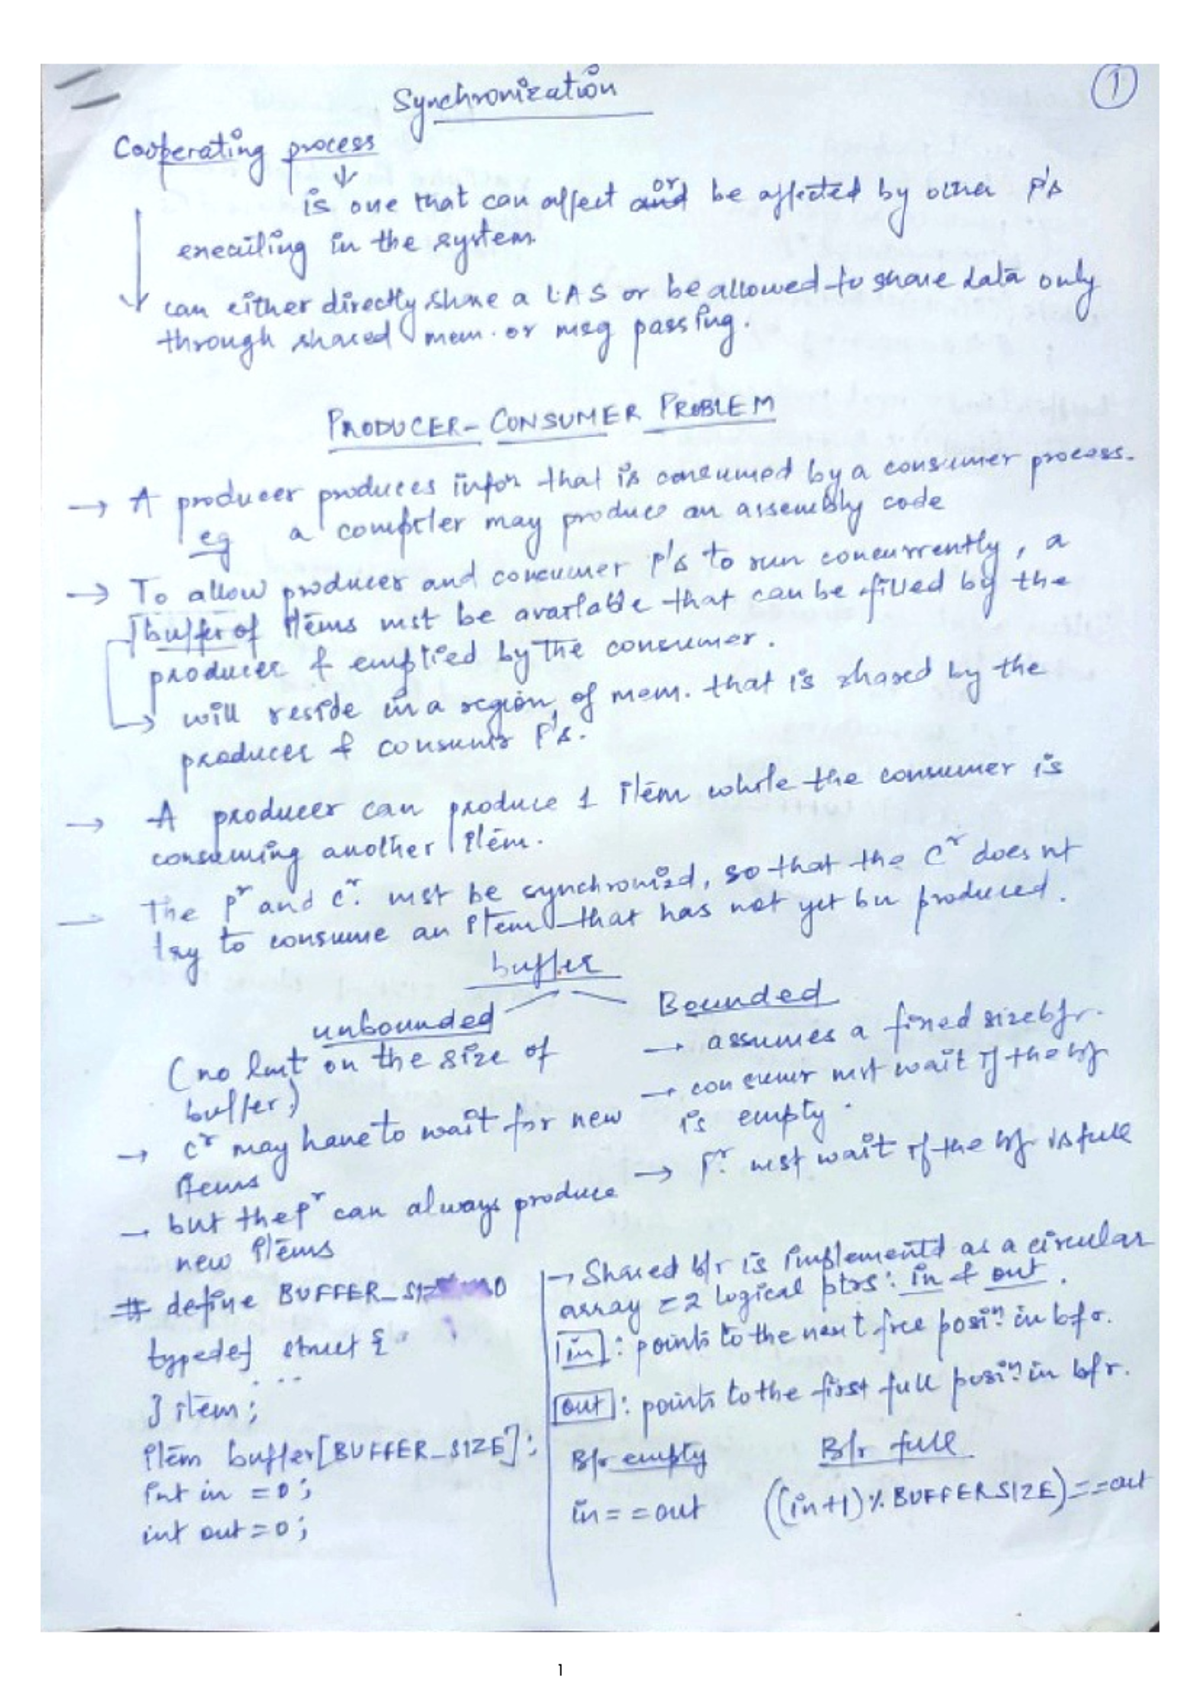 Synchronization
1
Cooperating process
is one that can affect or be affected by other P's
executing in the system.
can either directly share a LAS or be allowed to share data only
through shared mem. or msg passing.
PRODUCER-CONSUMER PROBLEM
→ A producer produces infon that is consumed by a consumer process.
eg a compiler may produce an assembly code
→ To allow producer and concumer P's to run concurrently, a
buffer of items mst be available that can be filled by the
producer & emptied by the consumer.
→ will reside in a region of mem. that is shared by the
producer & consumer P's.
→ A producer can produce 1 item while the consumer is
consuming another item.
— The Pr and Cr. mst be synchronized, so that the Cr does nt
try to consume an item that has not yet bn produced.
buffer
unbounded
(no lmt on the size of
buffer)
→ Cr may have to wait for new
items
→ but the Pr can always produce
new items
Bounded
→ assumes a fixed size bfr.
→ consumr mst wait if the bfr
is empty.
→ Pr. mst wait if the bfr is full
# define BUFFER_SIZE
typedef struct {
...
} item;
item buffer[BUFFER_SIZE];
int in = 0;
int out = 0;
→ Shared bfr is implementd as a circular
array 2 logical ptrs: in & out.
in : points to the next free posin. in bfr.
out : points to the first full posin. in bfr.
Bfr empty
in = = out
Bfr full
((in+1) % BUFFER SIZE) = = out
1